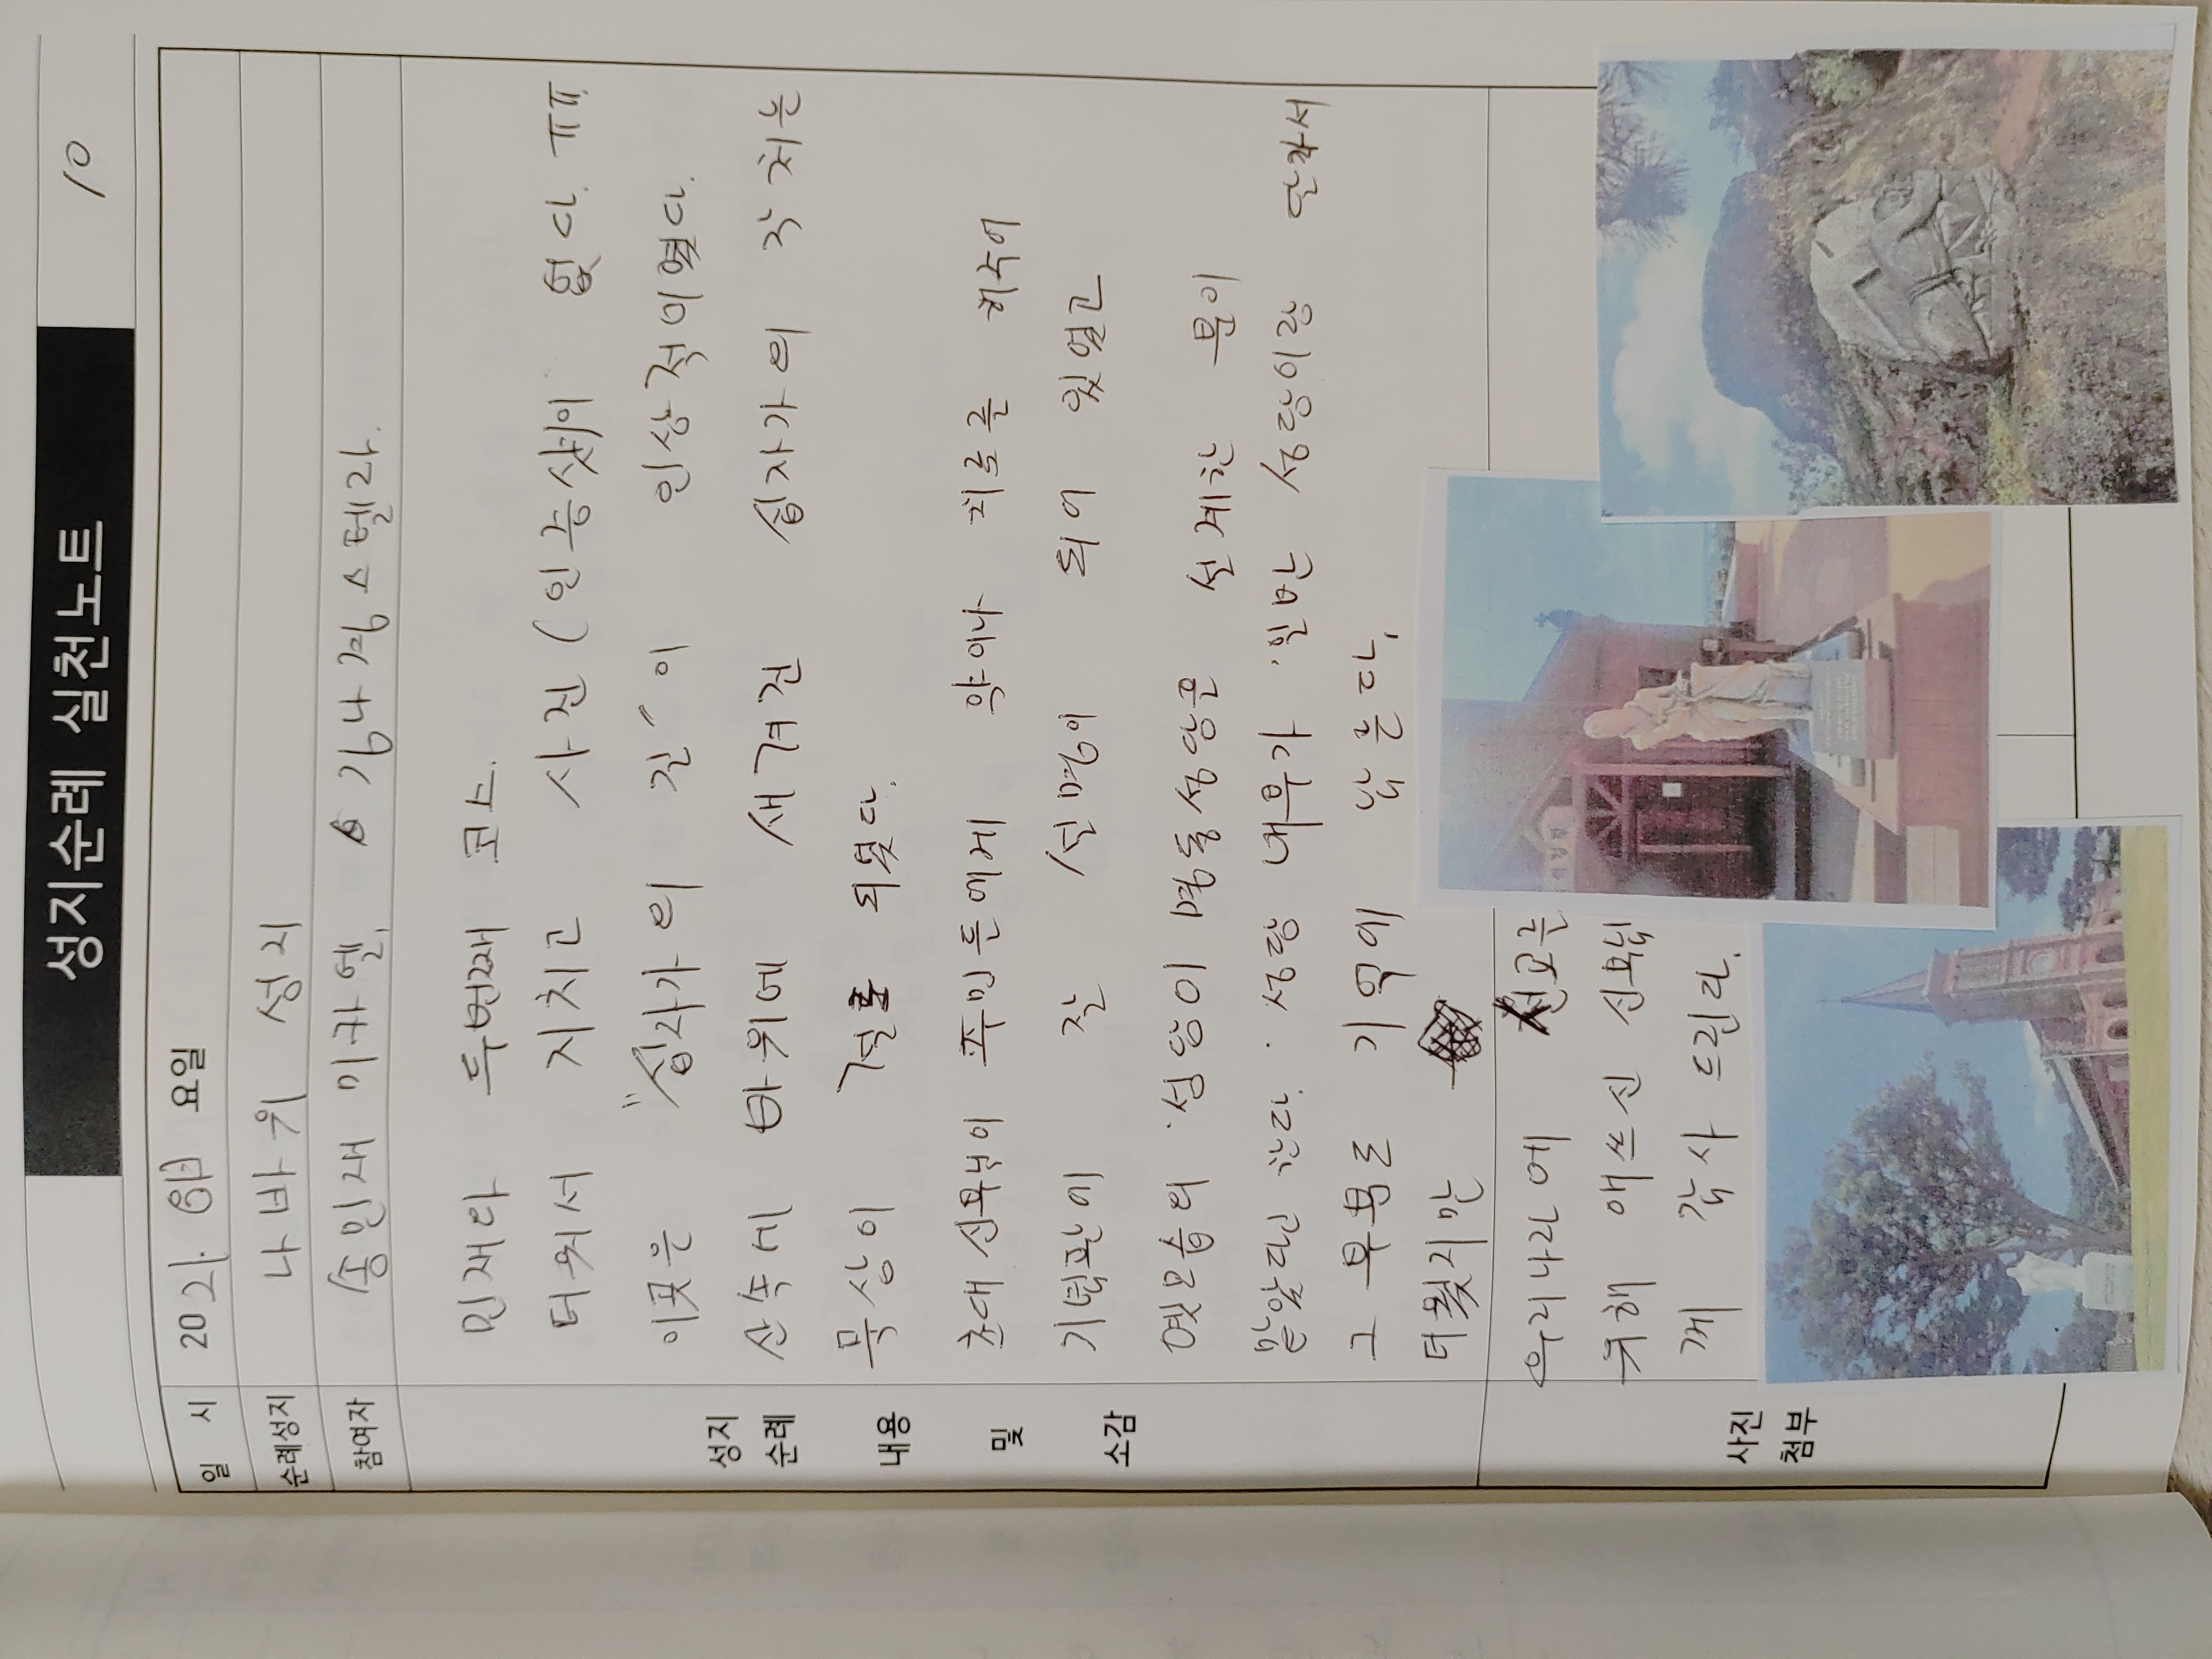 성지순례 실천노트
10
일 시 2021 요일
순례성지 나바위 성지
참여자 송민재 미카엘. 스텔라.
성지
순례
내용
및
소감
민재와 두번째 코스.
더워서 지치고 사진(인증샷)이 없다. ㅠㅠ
이곳은 "십자가의 길"이 인상적이였다.
산속에 바위에 새겨진 십자가의 각 처는
묵상이 절로 되었다.
초대 신부님이 주민들에게 약이나 치료를 해주어
기념관에 잘 설명이 되어 있었고
옛모습의 성당이 명동성당은 설계한 분이
맡았다고 한다. 성당 내부가 일반 성당이랑 달라서
그 부분도 기억에 남는다.
더웠지만
우리나라에 선교를
위해 애쓰신 신부님
께 감사 드린다.
사진
첨부